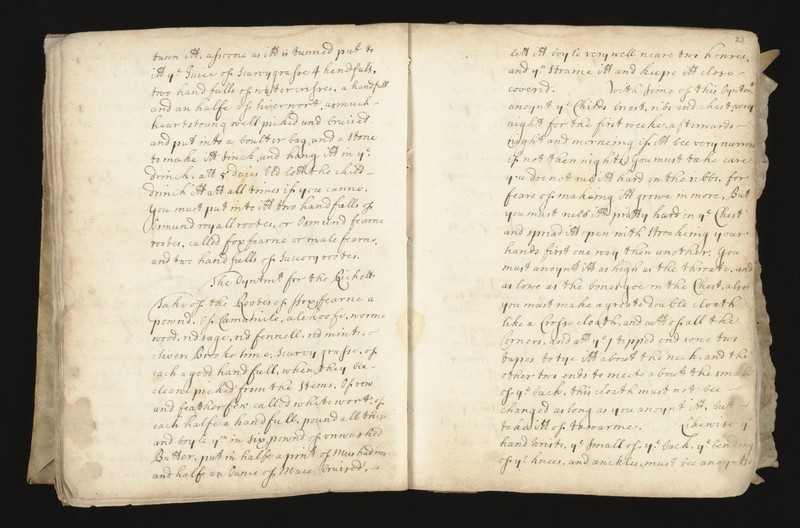 turn itt, assoone as itt is tunned put to
itt ye Juice of Scurvygrasse 4 handfuls,
two hand fulls of water cresses, a handfull
and an halfe of liverwort, asmuch
heartstoung well picked and bruised
and put into a boulter bag, and a stone
to make itt sinck, and hang itt in ye
drinck, att 5 dayes old lett the child
drinck itt att all times if you canne.
You must put into itt two handfulls of
Osmund royall rootes, or Osmund fearne
rootes, called fox fearne or male fearne,
and two handfulls of Succory rootes.
The Oyntmt for the Ricketts
Take of the Rootes of fox fearne a
pownd, of Camomile, alehoofe, worme
wood, red sage, red fennell, red mints,
cliven, Brooke lime, Scurvy grasse, of
each a good hand full, when they bee
cleane picked from the stems, Of rew
and featherfew called whitewort, of
each halfe a handfull, pound all these
and boyle ym in six pownd of unwashed
Butter, put in halfe a pint of Muskadine
and halfe an Ounce of Mace bruised,
21
lett itt boyle very well neare two howres,
and yn straine itt and keepe itt close
coverd. With some of this Oyntmt
anoynt ye Childs brest, ribs and chest every
night for the first weeke, afterwards
night and morneing if itt bee very narrow
if not then nights, you must take care
you doe not rub itt hard on the ribbs, for
feare of makeing itt growe in more, But
you must rubb itt pretty hard on ye Chest
and spread itt open with stroakeing your
hands first one way then another. You
must anoynt itt as high as the throate, and
as lowe as the bones goe in the Chest, also
you must make a greate double cloath
like a Crosse cloath, and att of all the
Corners, and att ye tipp'd end sowe two
tapes to tye itt about the neck, and the
other two ends to meete about the small
of ye back, this cloath must not bee
changed as long as you anoynt itt, butt
take itt of to warme. Likewise ye
hand wrists, ye small of ye back, ye bending
of ye knees, and anckles, must bee anoynted